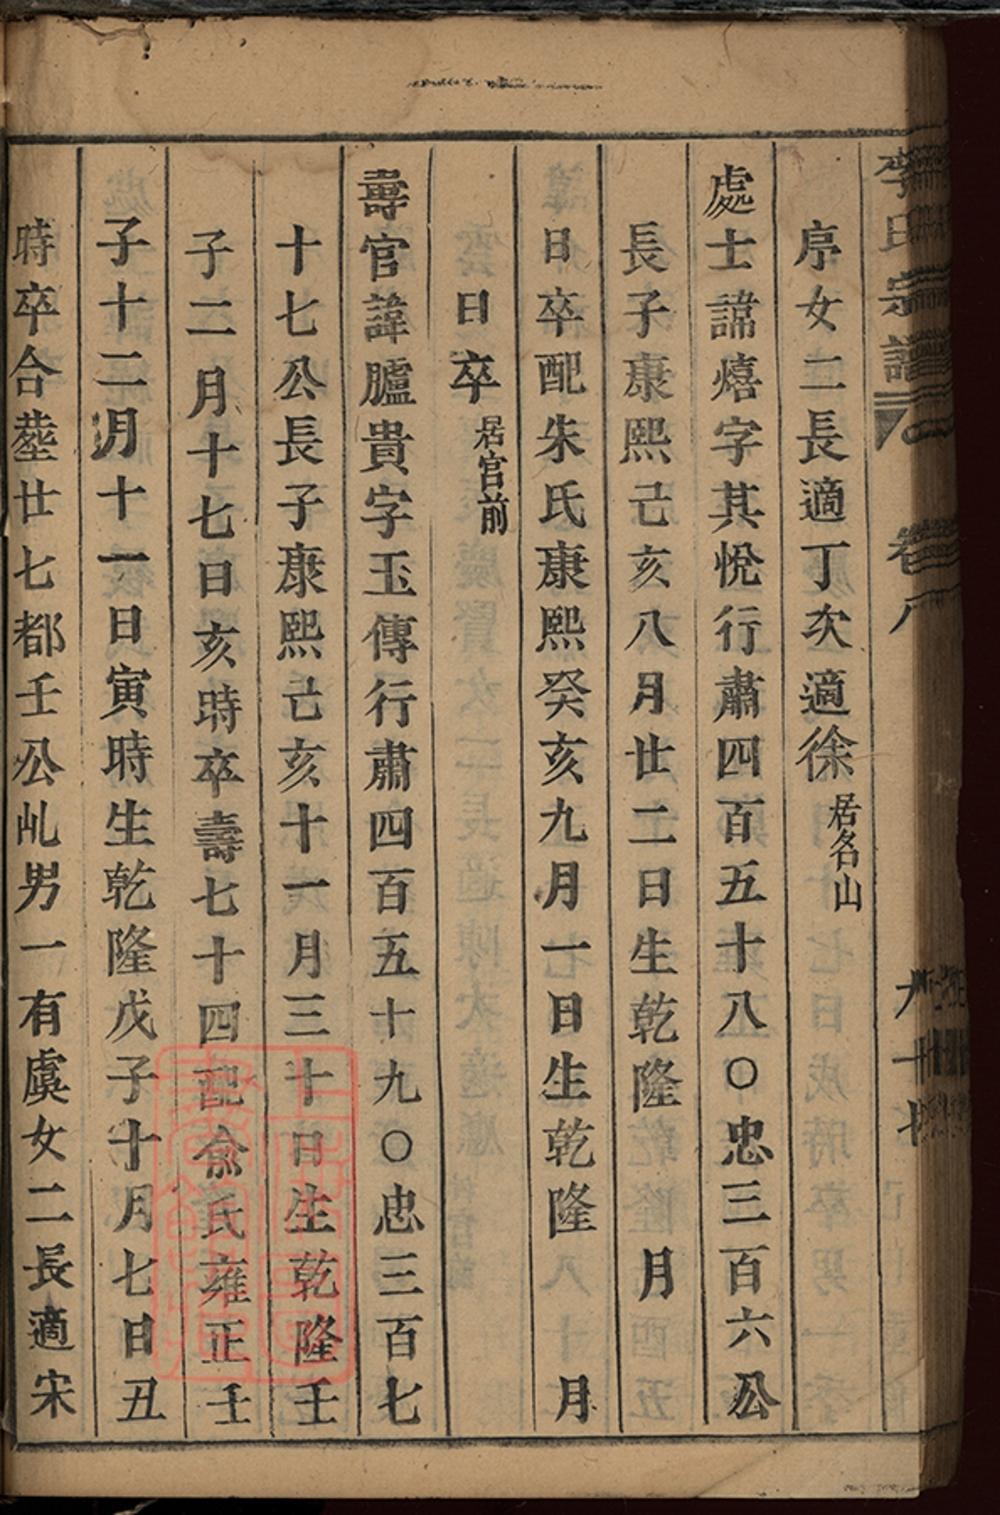 李氏宗譜 卷八 九十七
序女二長適丁次適徐居名山
處士諱熺字其悅行肅四百五十八〇忠三百六公
長子康熙己亥八月廿二日生乾隆 月
日卒配朱氏康熙癸亥九月一日生乾隆 月
日卒居官前
壽官諱臚貴字玉傳行肅四百五十九〇忠三百七
十七公長子康熙己亥十一月三十日生乾隆壬
子二月十七日亥時卒壽七十四配俞氏雍正壬
子十二月十一日寅時生乾隆戊子十月七日丑
時卒合塟廿七都壬公乢男一有虞女二長適宋